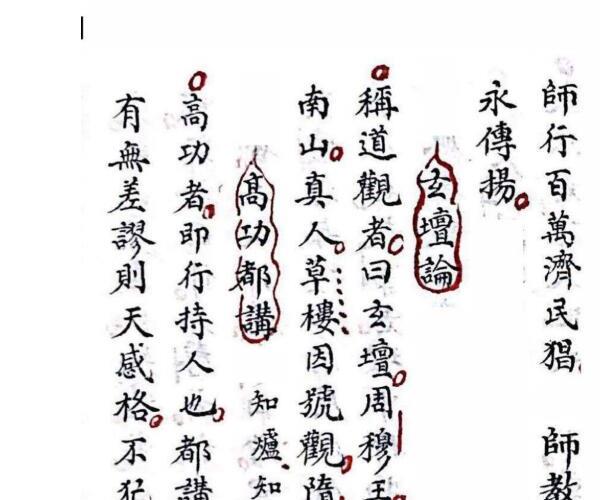 師行百萬濟民猖 師教
永傳揚
玄壇論
稱道觀者曰玄壇周穆王
南山真人草樓因號觀隋
高功都講 知爐知
高功者即行持人也都講
有無差謬則天感格不犯